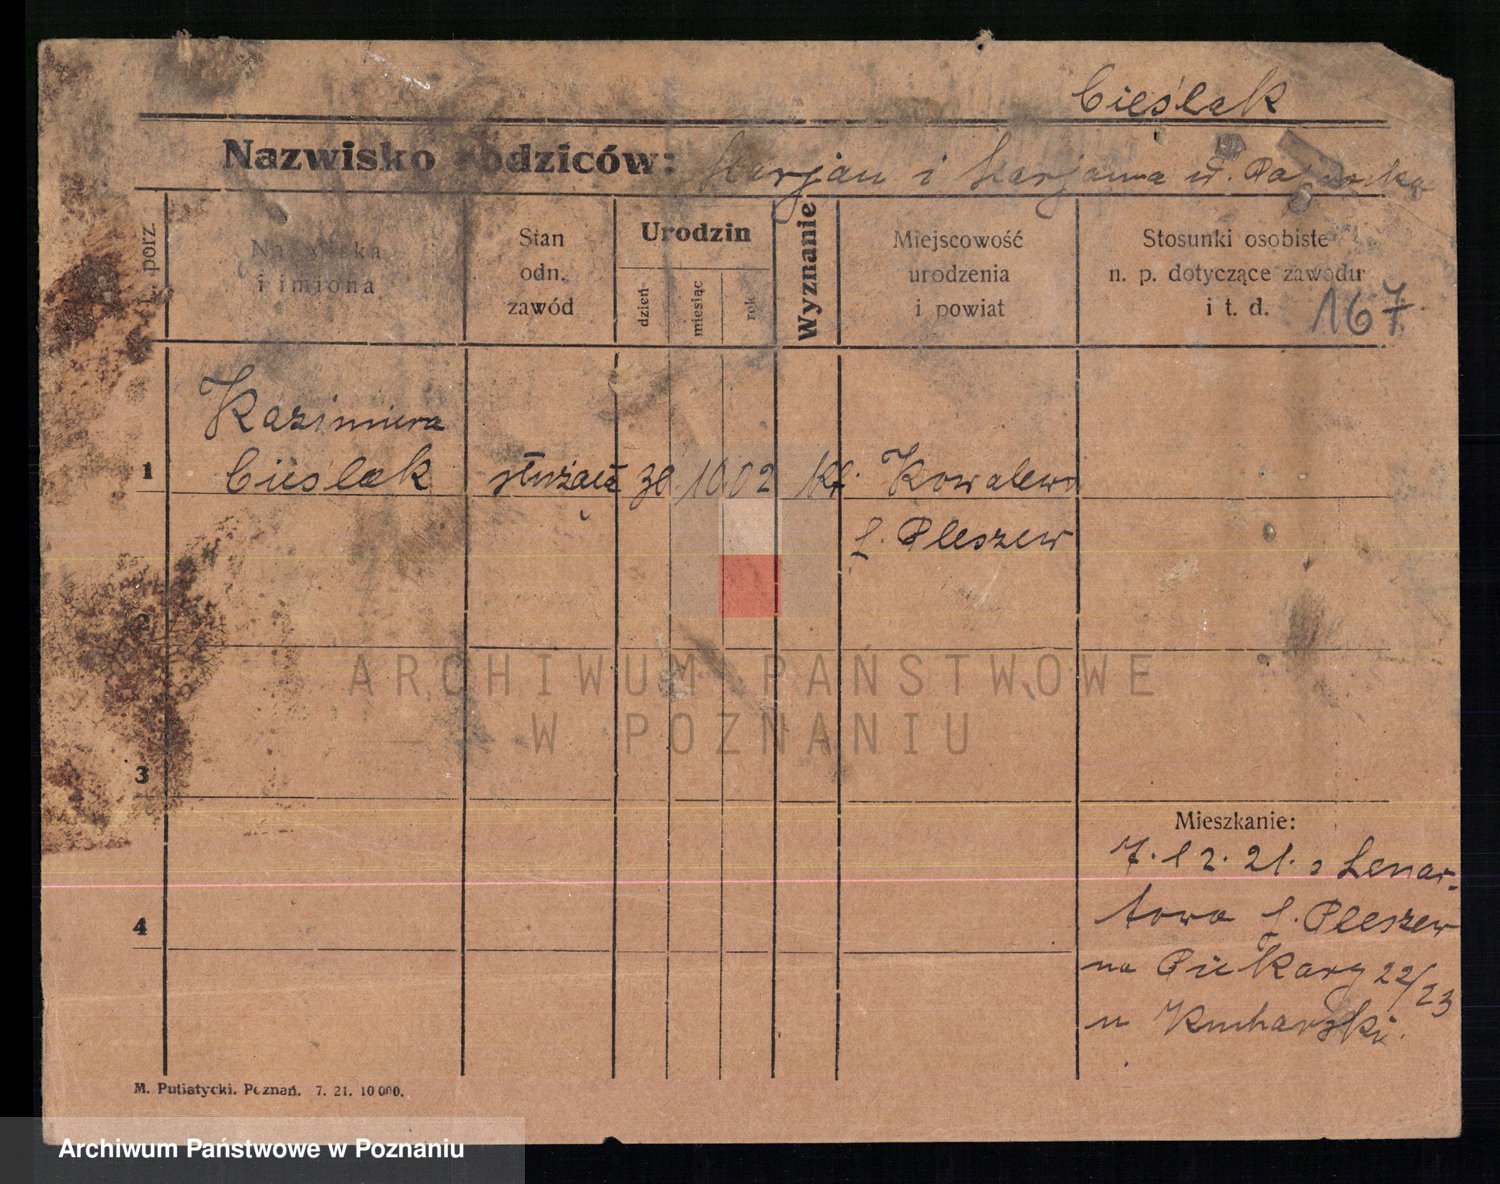 Cieślak
Nazwisko rodziców: Marjan i Marjanna d.
L. porz.
Nazwiska
i imiona
Stan
odn.
zawód
Urodzin
dzień
miesiąc
rok
Wyznanie
Miejscowość
urodzenia
i powiat
Stosunki osobiste
n. p. dotyczące zawodu
i t. d.
167
Kazimiera
1 Cieślak służąca 10 02 Kt. Kowalew
p. Pleszew
2
ARCHIWUM PAŃSTWOWE
W POZNANIU
3
Mieszkanie:
7.12.21. z Lenar-
4 towa p. Pleszew
na Piekary 22/23
u Kucharski.
M. Putiatycki. Poznań. 7. 21. 10 000.
Archiwum Państwowe w Poznaniu